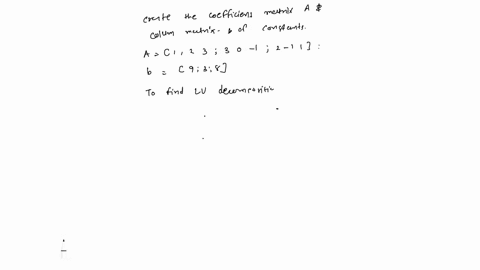 create the coefficions matrix A &
colum matrix - b of constants.
A = [1, 2 3 ; 3 0 -1 ; 2 -1 1] ;
b = [9; 3; 8]
To find LU decomposition